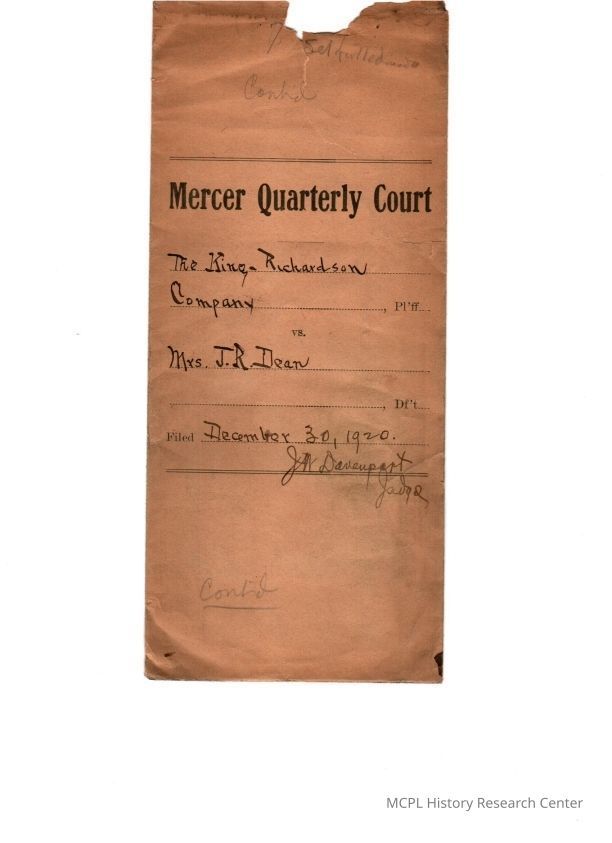 Cont'd
Mercer Quarterly Court
The King-Richardson
Company, Pl'ff.
vs.
Mrs. J.R. Dean
, Df't.
Filed December 30, 1920.
JW Davenport
Judge
Cont'd
MCPL History Research Center